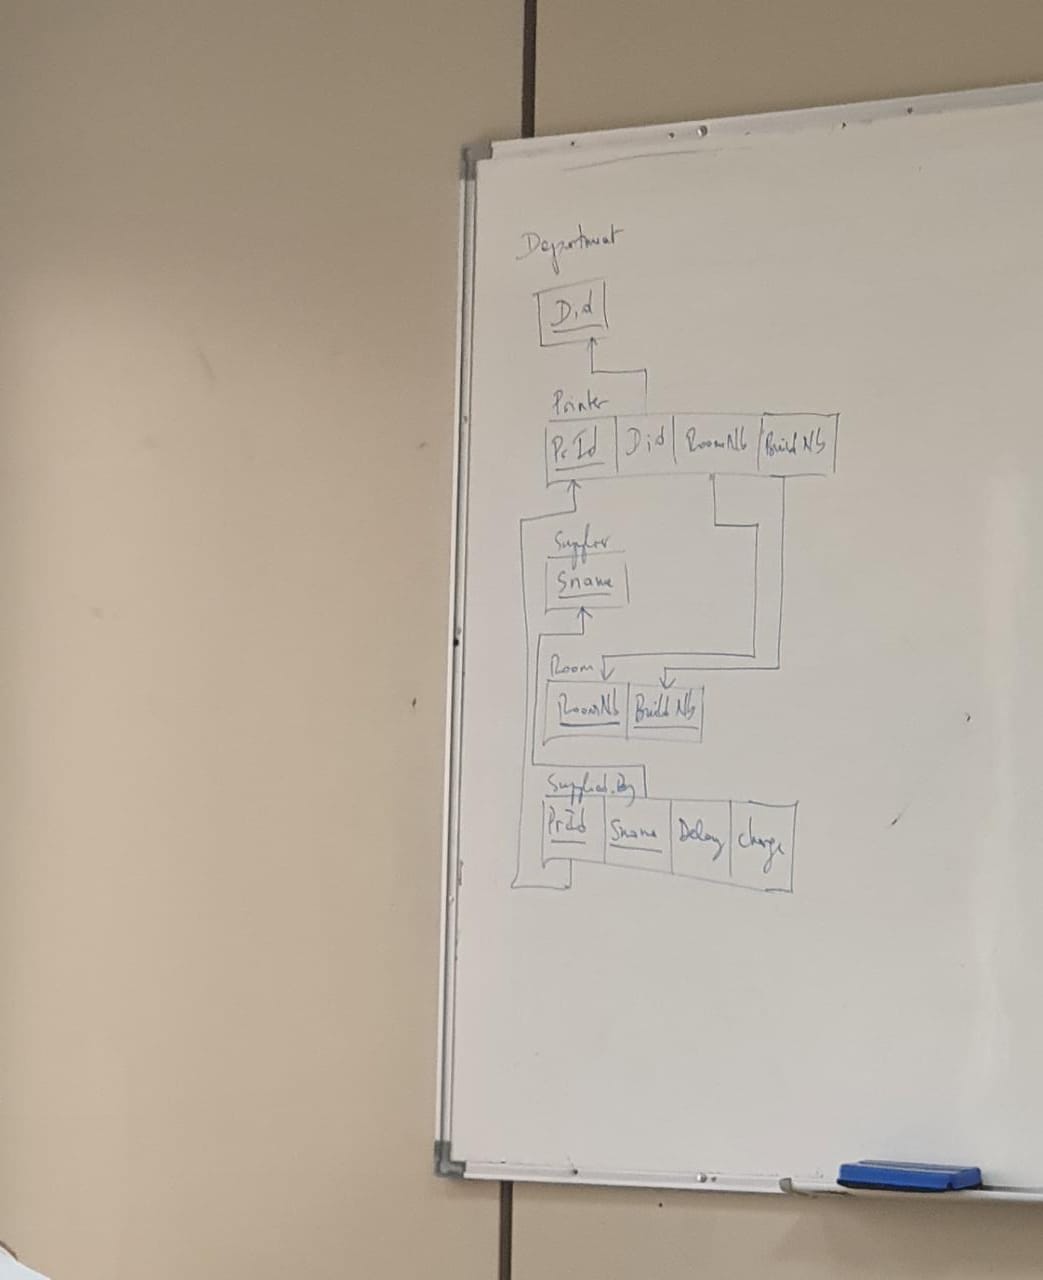 Department
Did
Printer
PrId Did RoomNb BuildNb
Supplier
Sname
Room
RoomNb BuildNb
Supplied_By
PrId Sname Delay charge